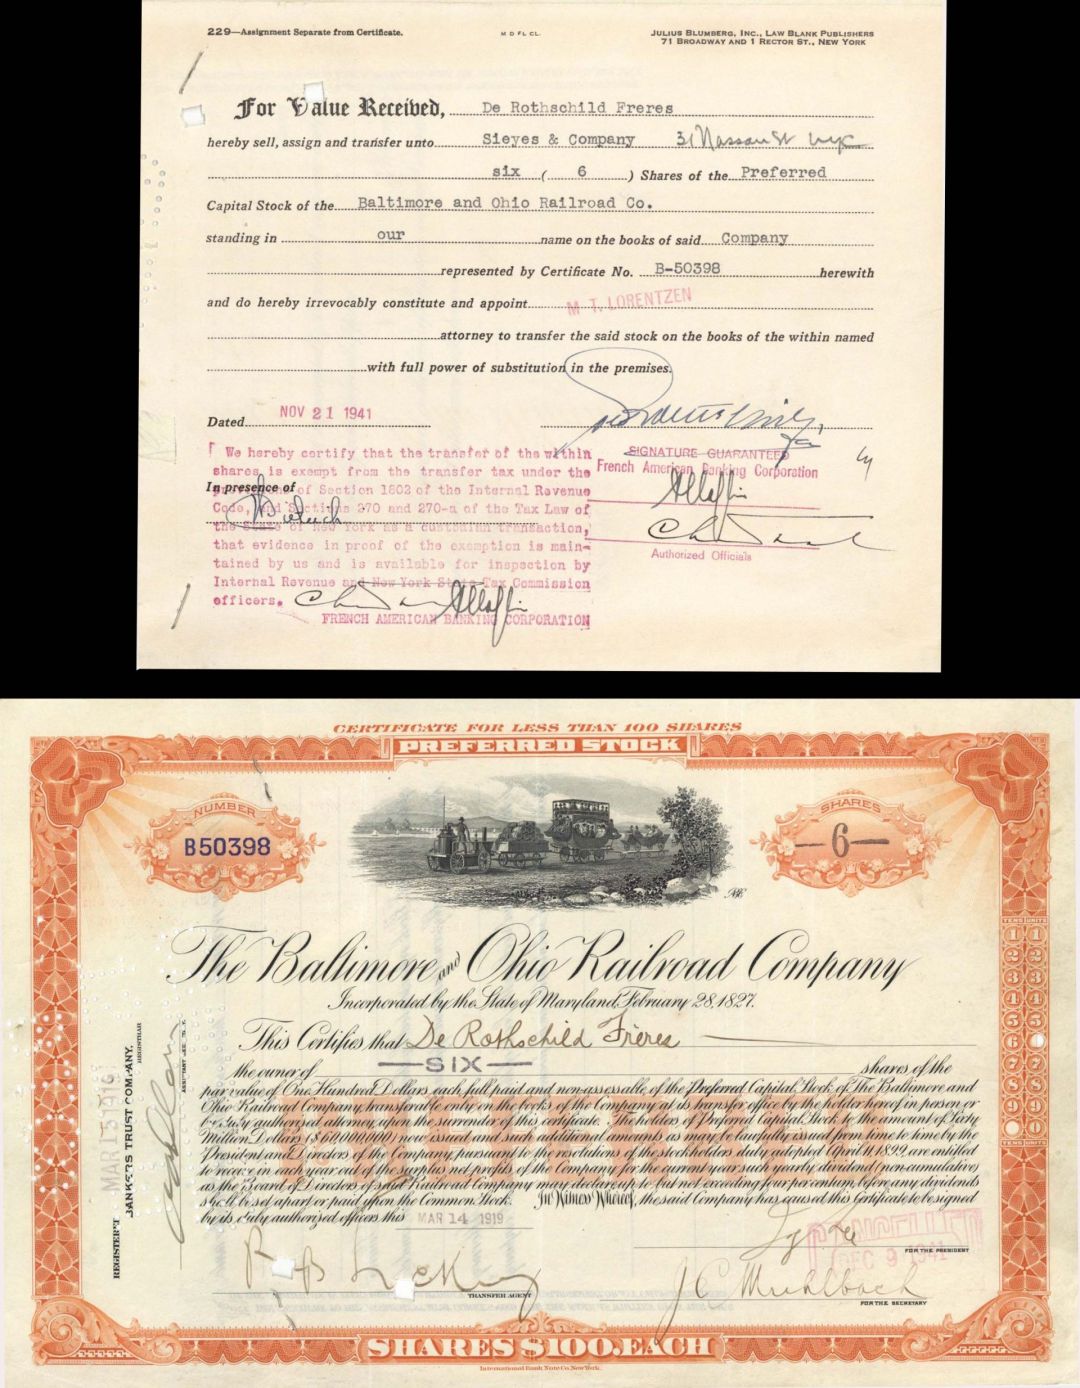 229—Assignment Separate from Certificate.
M D FL CL.
JULIUS BLUMBERG, INC., LAW BLANK PUBLISHERS
71 BROADWAY AND 1 RECTOR ST., NEW YORK
For Value Received, De Rothschild Freres
hereby sell, assign and transfer unto Sieyes & Company 31 Nassau St NYC
six ( 6 ) Shares of the Preferred
Capital Stock of the Baltimore and Ohio Railroad Co.
standing in our name on the books of said Company
represented by Certificate No. B-50398 herewith
and do hereby irrevocably constitute and appoint M T. LORENTZEN
attorney to transfer the said stock on the books of the within named
with full power of substitution in the premises.
Dated NOV 21 1941
In presence of
We hereby certify that the transfer of the within
shares is exempt from the transfer tax under the
provisions of Section 1802 of the Internal Revenue
Code, and Sections 270 and 270-a of the Tax Law of
the State of New York as a custodian transaction,
that evidence in proof of the exemption is main-
tained by us and is available for inspection by
Internal Revenue and New York State Tax Commission
officers.
FRENCH AMERICAN BANKING CORPORATION
SIGNATURE GUARANTEED
French American Banking Corporation
Authorized Officials
CERTIFICATE FOR LESS THAN 100 SHARES
PREFERRED STOCK
NUMBER
B50398
SHARES
—6—
The Baltimore and Ohio Railroad Company
Incorporated by the State of Maryland, February 28, 1827.
This Certifies that De Rothschild Frères
the owner of —SIX— shares of the
par value of One Hundred Dollars each, full paid and non-assessable, of the Preferred Capital Stock of The Baltimore and
Ohio Railroad Company, transferable only on the books of the Company at its transfer office by the holder hereof in person or
by duly authorized attorney, upon the surrender of this certificate. The holders of Preferred Capital Stock to the amount of Sixty
Million Dollars ($60,000,000) now issued and such additional amounts as may be lawfully issued from time to time by the
President and Directors of the Company, pursuant to the resolutions of the stockholders duly adopted April 11, 1899, are entitled
to receive in each year out of the surplus net profits of the Company for the current year such yearly dividend (non-cumulative)
as the Board of Directors of said Railroad Company may declare up to, but not exceeding four per centum, before any dividends
shall be set apart or paid upon the Common Stock. In Witness Whereof, the said Company has caused this Certificate to be signed
by its duly authorized officers this MAR 14 1919
TRANSFER AGENT
FOR THE PRESIDENT
J C Muhlbach
FOR THE SECRETARY
CANCELLED
DEC 9 1941
REGISTER'D MAR 13 1919
BANKERS TRUST COMPANY,
REGISTRAR
TENS UNITS
1 1
2 2
3 3
4 4
5 5
6 6
7
8 8
9 9
0
TENS UNITS
SHARES $100. EACH
International Bank Note Co. New York.